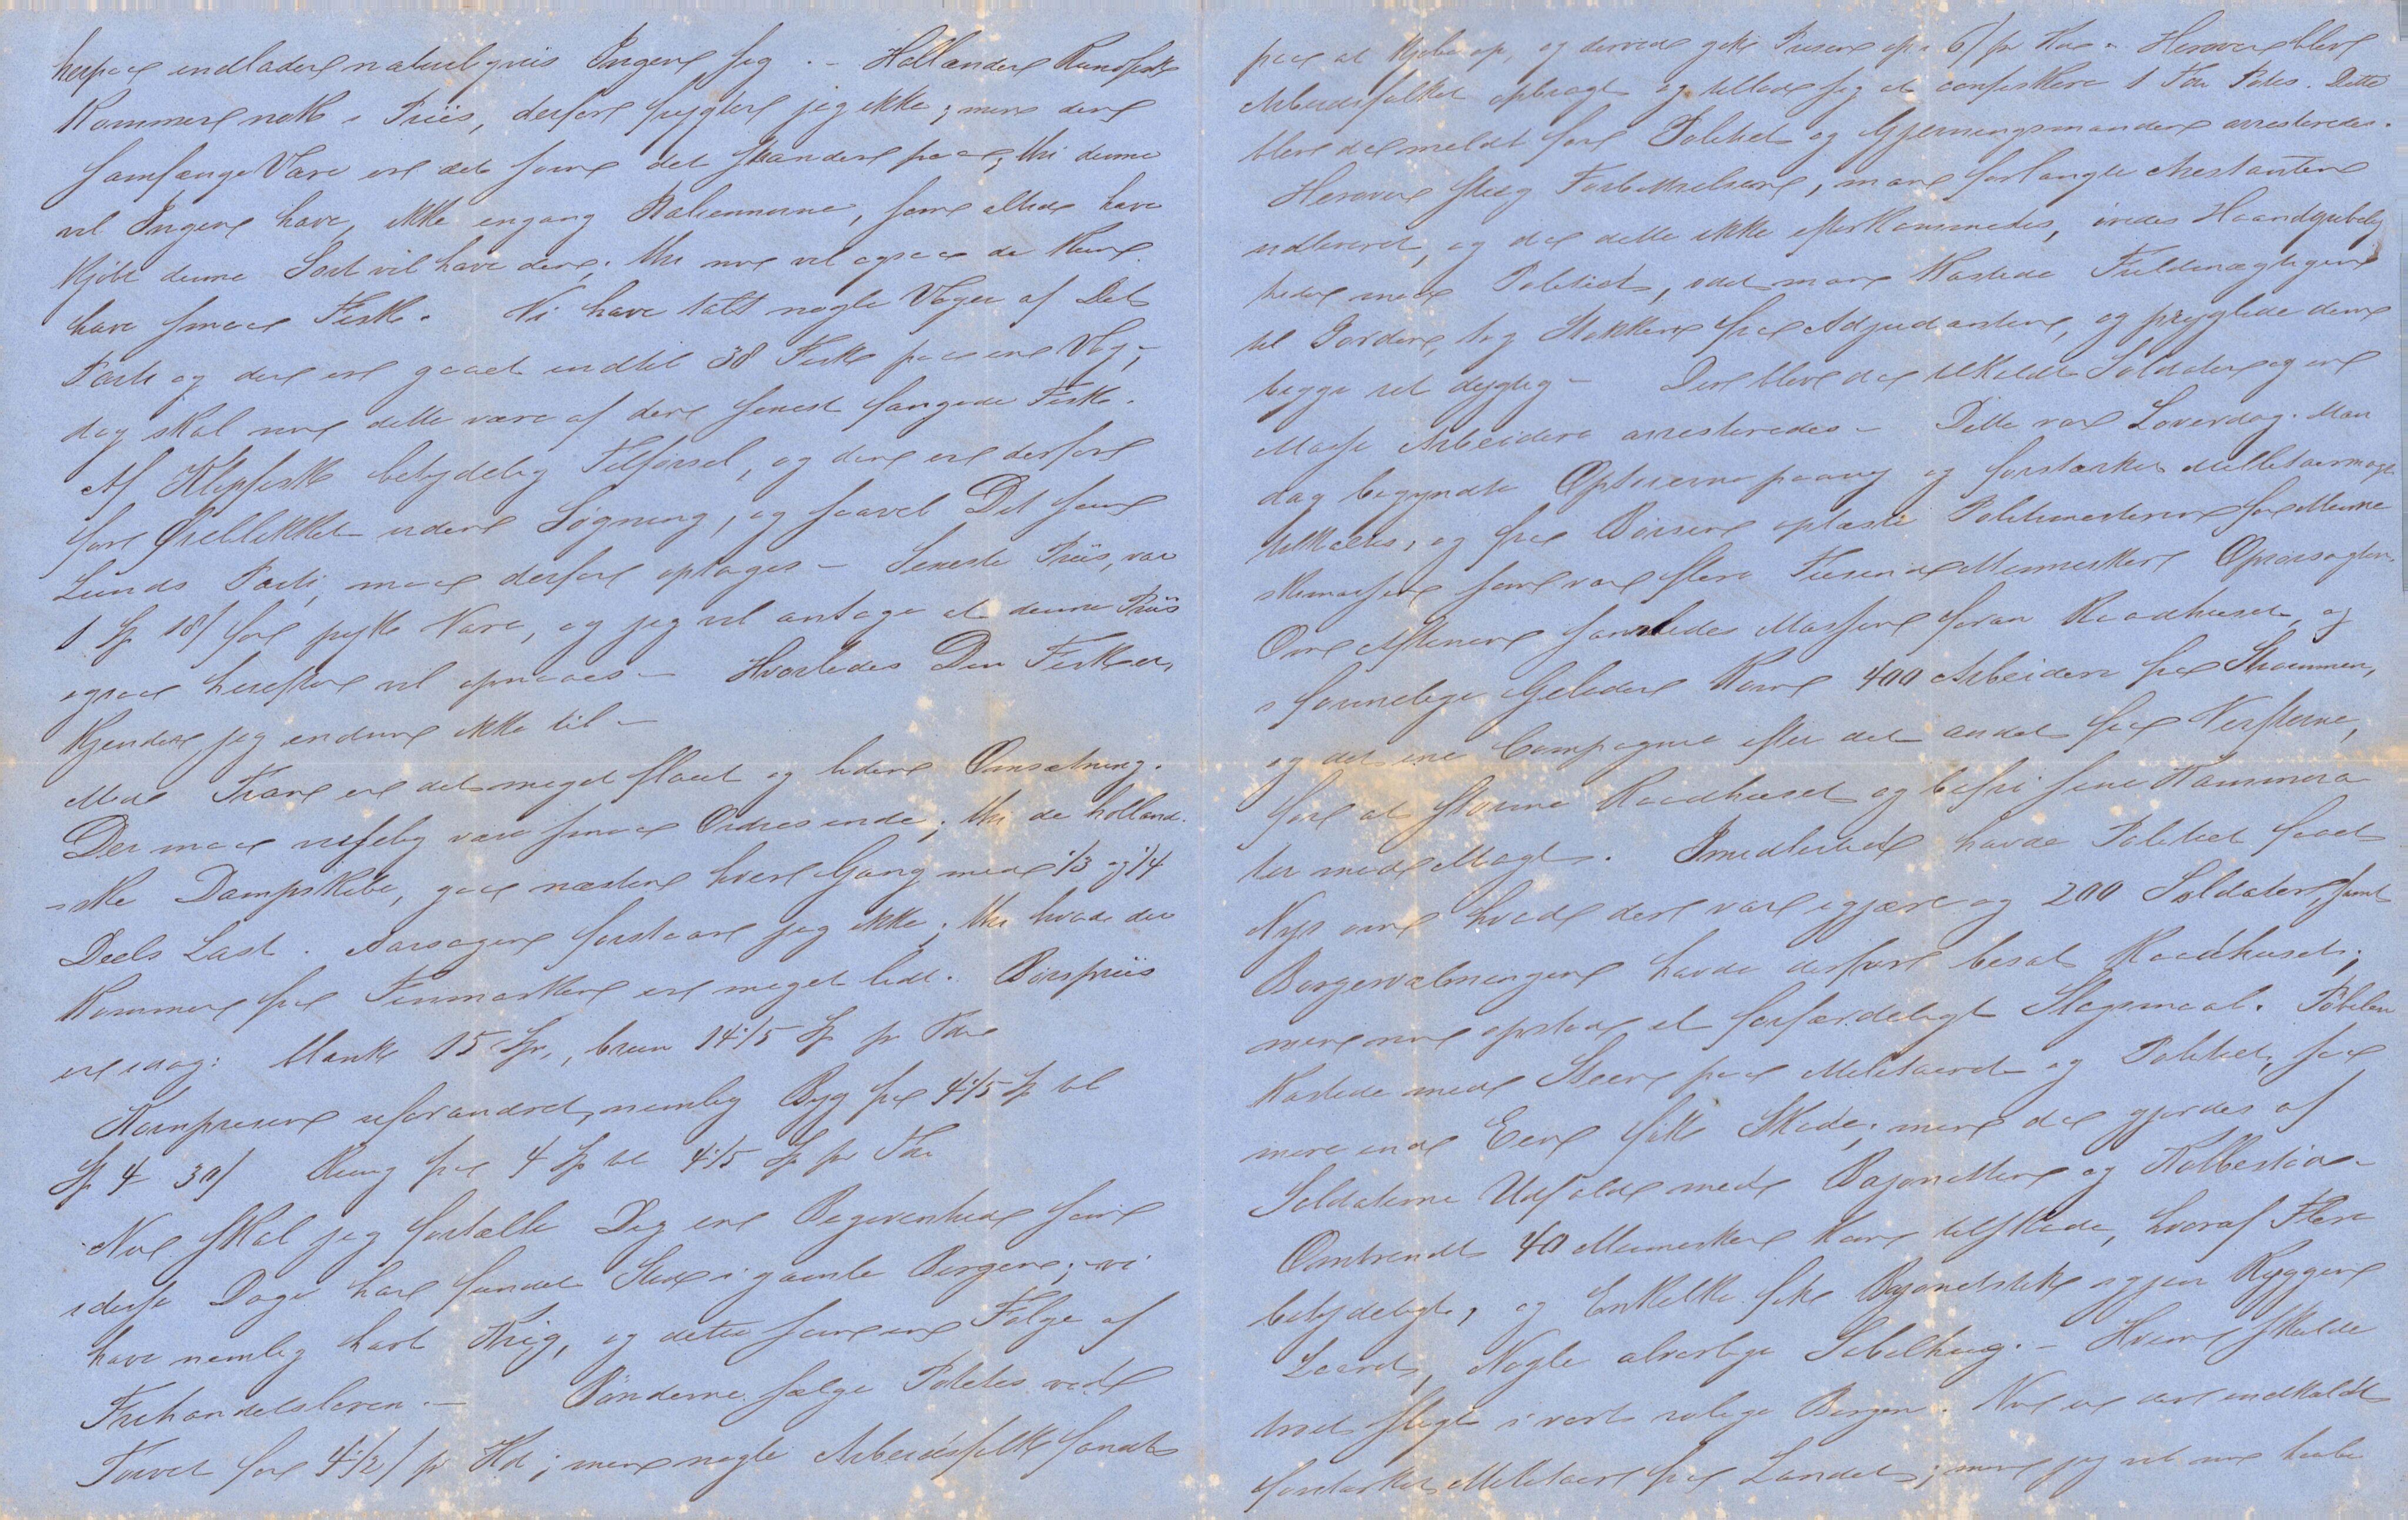 herpaa indlader naturligviis Ingen sig. – Hollænder Rundfisk
kommer nok i Priis, derfor frygter jeg ikke; men den
samfænge Vare er det som det skander paa; thi denne
vil Ingen have, ikke engang Italiennerne, som altid have
kjøbt denne Sort vil have den; thi nu vil ogsaa de kun
have smaa Fisk. Vi have talt nogle Voger af Dit
Parti og der er gaaet indtil 38 Fisk paa en Vog –
dog skal nu dette være af den senest fangede Fisk.
Af Klipfisk betydelig Tilførsel, og den er derfor
for Øieblikket uden Søgning, og saavel Dit som
Lunds Parti, maa derfor oplages – Seneste Priis, var
1 Sp 18/ for pykt Vare, og jeg vil antage at denne Priis
ogsaa herefter vil opnaaes – Hvorledes Din Fisk er,
kjender jeg endnu ikke til –
Med Tran er det meget flaut og liden Omsætning.
Der maa visselig være smaa Ordres inde; thi de holland-
-ske Dampskibe, gaa næsten hver Gang med 1/3 og 1/4
Deels Last. Aarsagen forstaar jeg ikke; thi hvad der
kommer fra Finmarken er meget lidt. Børspriis
er idag: blank 15 Sp, bruun 14 1/5 Sp pr Tde
Kornprisen uforandret, nemlig Byg fra 4 1/5 Sp til
Sp 4 30/ Rug fra 4 Sp til 4 1/5 Sp pr Tde
Nu skal jeg fortælle Dig en Begivenhed som
i disse Dage har fundet Sted i gamle Bergen; vi
have nemlig havt Krig, og dette som en Følge af
Frihandelsloven. – Bønderne sælge Potetes ved
Torvet for 4 1/2/ pr Kd; men nogle Arbeidsfolk fandt
paa at kjøbe op, og derved gik Prisen op i 6/ pr Kd. Herover blev
Arbeidsfolket opbragt og tillod sig at confiskere 1 Tde Potes. Dette
blev da meldt for Politiet og Gjerningsmanden arresteredes.
Herover steeg Forbittrelsen, man forlangte Arestanten
udleveret, og da dette ikke efterkommedes, øvedes Haandgribelig
heder mod Politiet, idet man kastede Fuldmægtigen
til Jorden, tog Stokken fra Adjudanten, og pryglede dem
begge ret dygtig – Der blev da tilkaldt Soldater og en
Masse Arbeidere arresteredes – Dette var Løverdag. Man
dag begyndte Optøierne paany og forstærket Millitairmagt
tilkaldtes, og fra Børsen oplæste Politimesteren for Menne
skemassen som var flere Tusinde Mennesker Oprørsagten.
Om Aftenen samledes Massen foran Raadhuset, og
i formelige Geleder kom 400 Arbeidere fra Strømmen,
og det ene Compagnie efter det andet fra Verfterne,
for at storme Raadhuset og befri sine Kammera
ter med Magt. Imidlertid havde Politiet faaet
Nys om hvad der var igjære og 200 Soldater, samt
Borgervæbningen havde derfor besat Raadhuset;
men nu opstod et forfærdeligt Slagsmaal. Pøbelen
kastede med Steen paa Militairet og Politiet, saa
mere end Een fik Skade, men da gjordes af
Soldaterne Udfald med Bajonetter og Kolbestød –
Omtrendt 40 Mennesker kom tilskade, hvoraf Flere
betydeligt, og Enkelte fik Bajonetstik igjen Ryggen
Laaret, Nogle alvorlige Sabelhug. – Hvem skulde
troet sligt i vort rolige Bergen. Nu er der indkaldt
forstærket Militair fra Landet; men jeg vil nu haabe